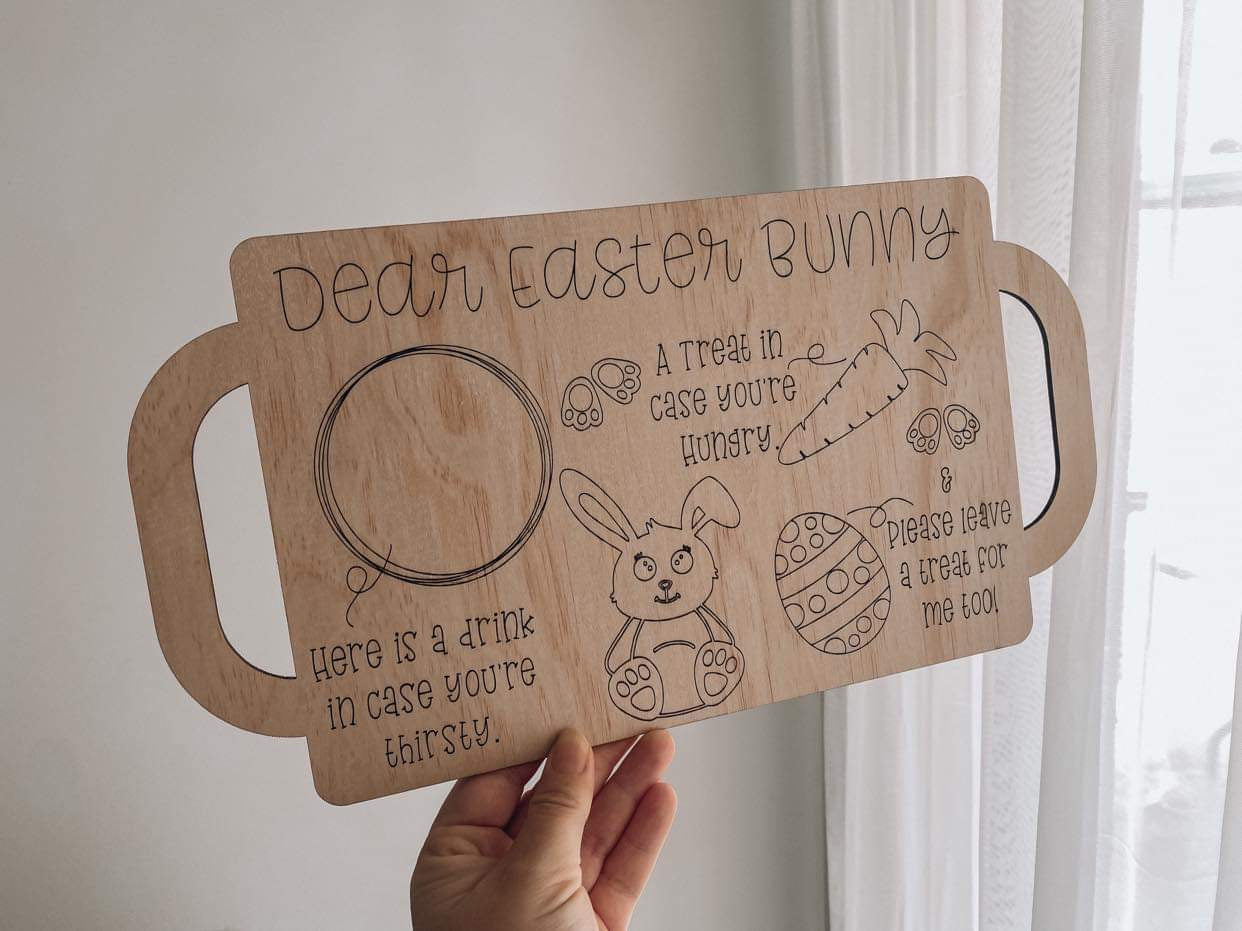 Dear Easter Bunny
A Treat in
case you're
Hungry.
&
Please leave
a treat for
me too!
Here is a drink
in case you're
thirsty.